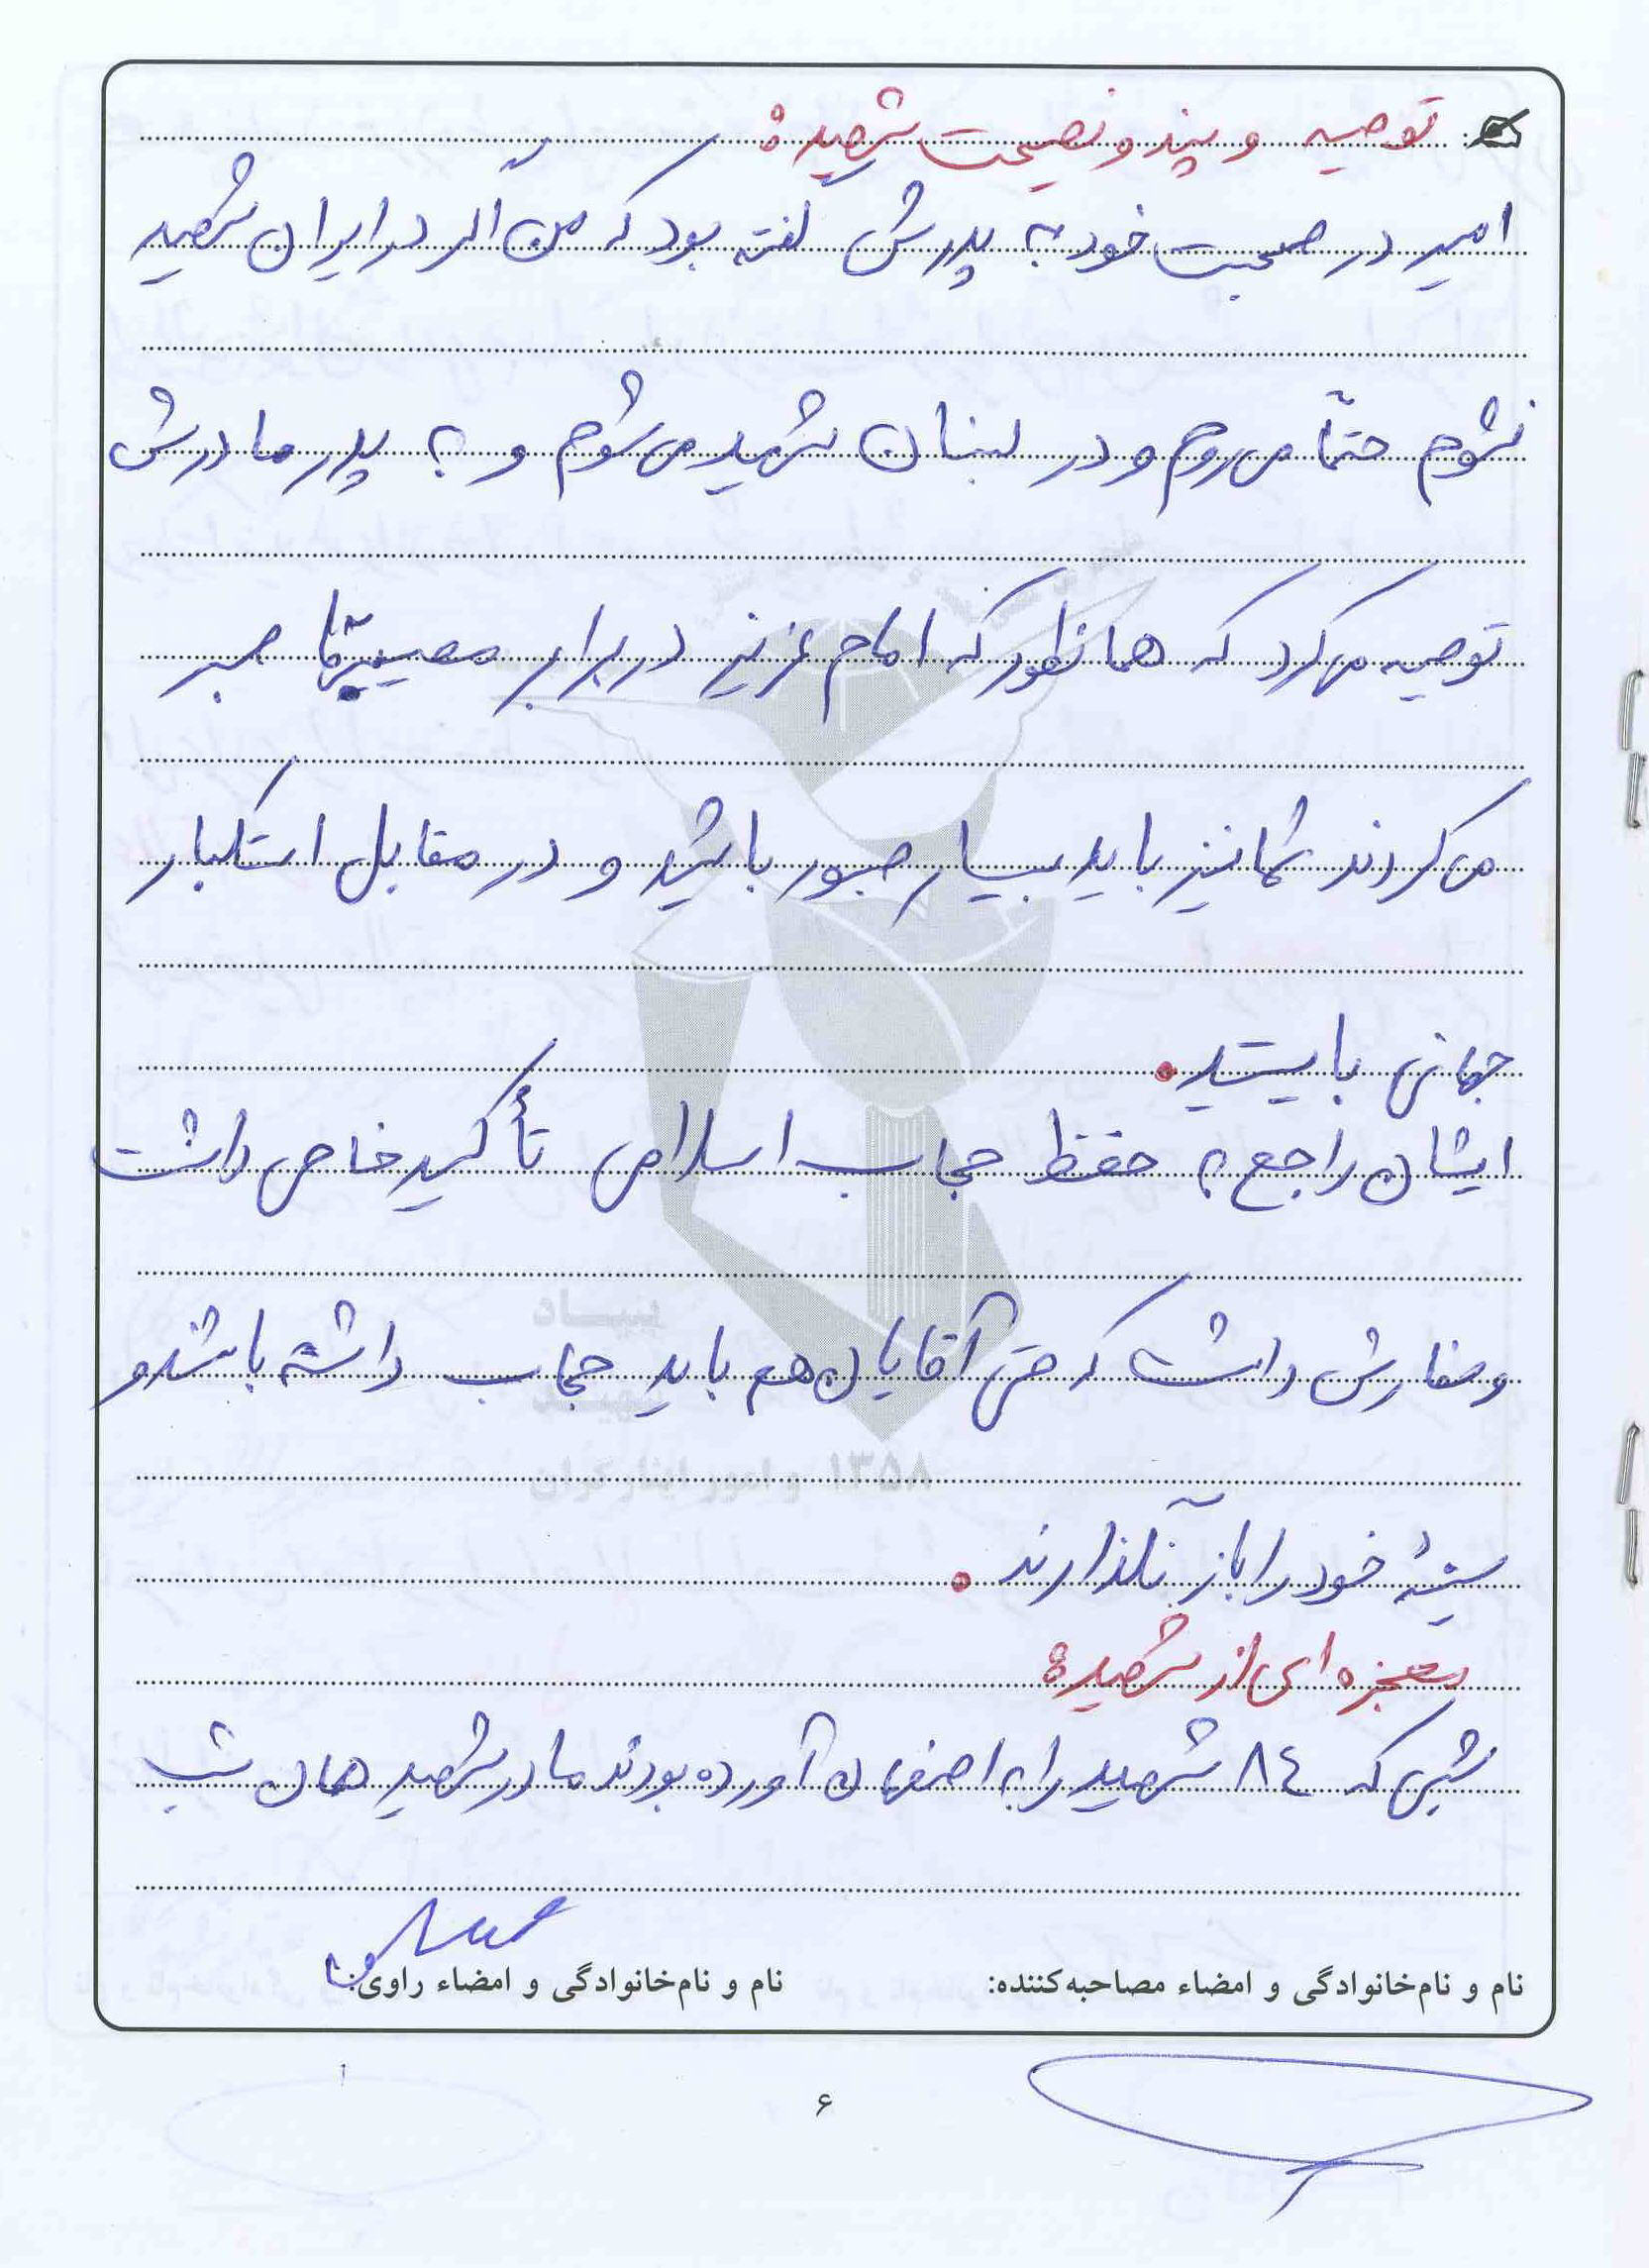 توصیه و پند و نصیحت شهید:
امیر در صحبت خود به پدرش گفته بود که من اگر در ایران شهید
نشوم حتماً می‌روم و در لبنان شهید می‌شوم و به پدر مادرش
توصیه می‌کرد که همانطور که امام عزیز در برابر مصیبتها صبر
می‌کردند شما نیز باید بسیار صبور باشید و در مقابل استکبار
جهانی بایستید.
ایشان راجع به حفظ حجاب اسلامی تأکید خاصی داشت
و سفارش داشت که حتی آقایان هم باید حجاب داشته باشند و
سینهٔ خود را باز نگذارند.
معجزه ای از شهید:
شبی که ۸٤ شهید را به اصفهان آورده بودند مادر شهید همان شب
نام و نام‌خانوادگی و امضاء مصاحبه‌کننده: نام و نام‌خانوادگی و امضاء راوی:
۶
بنیاد
شهید
و امور ایثارگران ۱۳۵۸